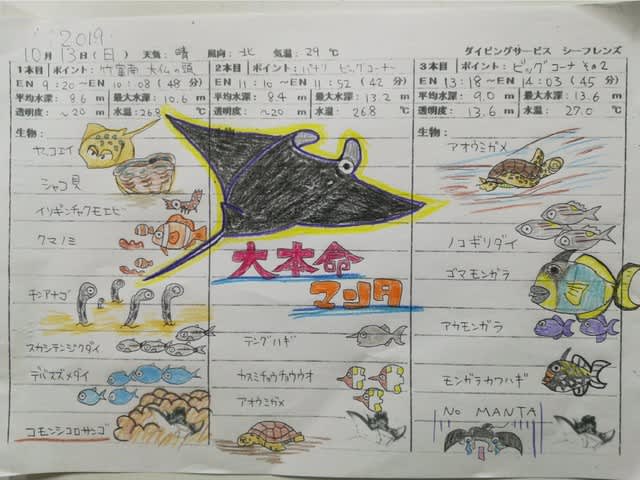 2019
10月13日(日) 天気: 晴 風向: 北 気温: 29℃ ダイビングサービス シーフレンズ
1本目 ポイント: 竹富南 大仏の頭
EN 9:20~EN 10:08 (48分)
平均水深: 8.6 m 最大水深: 10.6 m
透明度: ~20 m 水温: 26.8
生物:
ヤッコエイ
シャコ貝
イソギンチャクモエビ
クマノミ
チンアナゴ
スカシテンジクダイ
デバスズメダイ
コモンシコロサンゴ
2本目 ポイント: パナリ ビッグコーナー
EN 11:10~EN 11:52 (42分)
平均水深: 8.4 m 最大水深: 13.2 m
透明度: ~20 m 水温: 26.8 ℃
大本命
マンタ
テングハギ
カスミチョウチョウウオ
アオウミガメ
3本目 ポイント: ビッグコーナ その2
EN 13:18~EN 14:03 (45分)
平均水深: 9.0 m 最大水深: 13.6 m
透明度: 13.6 m 水温: 27.0 ℃
生物:
アオウミガメ
ノコギリダイ
ゴマモンガラ
アカモンガラ
モンガラカワハギ
NO MANTA